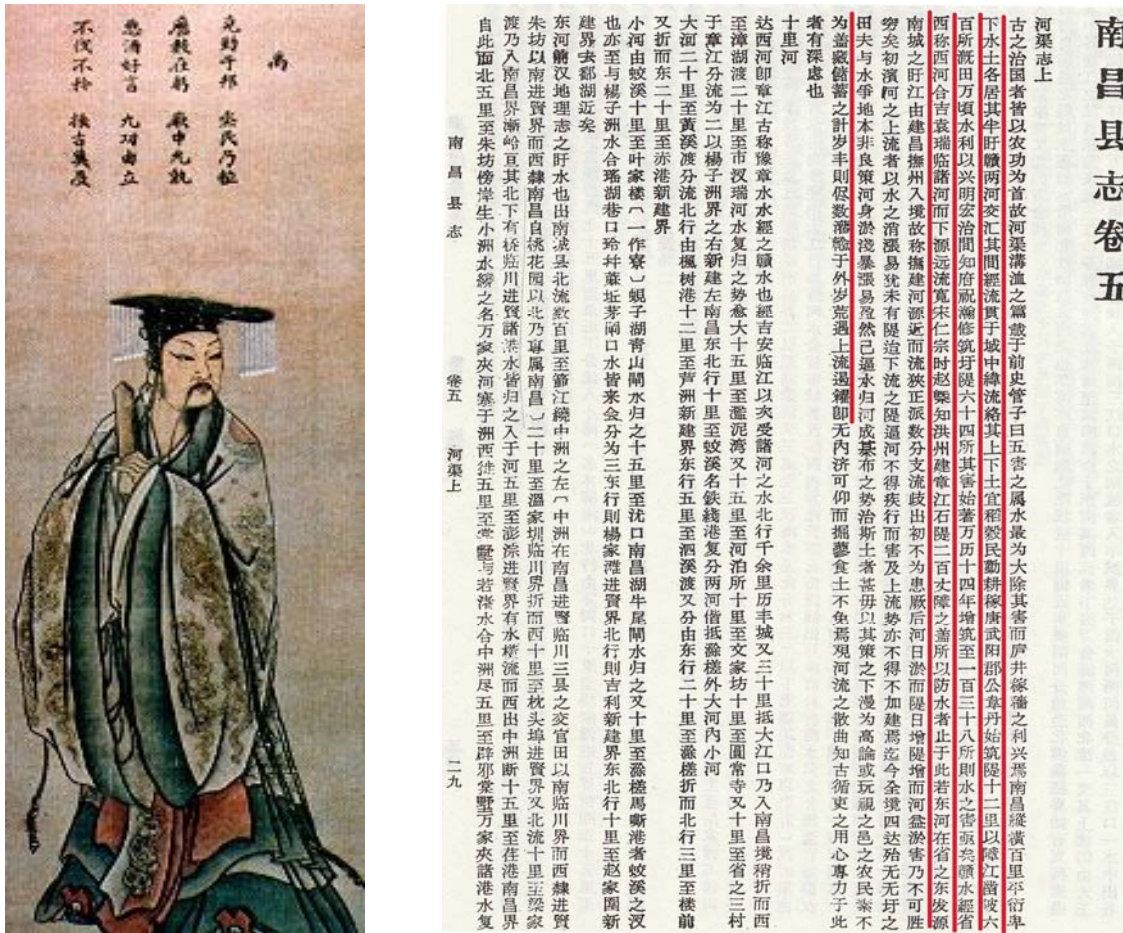 禹
克勤于邦 烝民乃粒
厤數在躬 厥中允執
惡酒好言 九功由立
不伐不矜 振古莫及
南昌县志卷五
河渠志上
古之治国者皆以农功为首故河渠溝洫之篇載于前史管子曰五害之属水最为大除其害而庐井稼穡之利兴焉南昌縱橫百里平衍卑
下水土各居其半盱贛两河交汇其間經流貫于域中緯流絡其上下土宜稻穀民勤耕稼唐武阳郡公韋丹始筑隄十二里以障江凿陂六
百所溉田万頃水利以兴明宏治間知府祝瀚修筑圩隄六十四所其害始著万历十四年增筑至一百三十八所則水之害亟矣贛水經省
西称西河合吉袁瑞临諸河而下源远流寬宋仁宗时赵槩知洪州建章江石隄二百丈障之盖所以防水者止于此若东河在省之东发源
南城之盱江由建昌撫州入境故称撫建河源近而流狹正派数分支流歧出初不为患厥后河日淤而隄日增隄增而河益淤害乃不可胜
穷矣初濱河之上流者以水之消漲易犹未有隄迨下流之隄逼河不得疾行而害及上流势亦不得不加建焉迄今全境四达殆无无圩之
田夫与水爭地本非良策河身淤淺暴漲易盈然已逼水归河成棊布之势治斯土者甚毋以其策之下漫为高論或玩視之邑之农民素不
为盖藏儲蓄之計岁丰則侭数于外岁荒遇上流遏糴卽无內济可仰而掘蔘食土不免焉观河流之散曲知古循吏之用心專力于此
者有深虑也
十里河
达西河卽章江古称豫章水水經之贛水也經吉安临江以次受諸河之水北行千余里历丰城又三十里抵大江口乃入南昌境稍折而西
至漳湖渡二十里至市汊瑞河水复归之势愈大十五里至濫泥湾又十五里至河泊所十里至文家坊十里至圓常寺又十里至省之三村
于章江分流为二以楊子洲界之右新建左南昌东北行十里至蛟溪名鉄綫港复分两河偕抵滁槎外大河內小河
大河二十里至黃溪渡分流北行由楓树港十二里至芦洲新建界东行五里至泗溪渡又分由东行二十里至滁槎折而北行三里至楼前
又折而东二十里至赤港新建界
小河由蛟溪十里至叶家楼（一作寮）蜆子湖青山閘水归之十五里至沋口南昌湖牛尾閘水归之又十里至滁槎馬嘶港者蛟溪之汊
也亦至与楊子洲水合瑤湖巷口玲村蔴坵茅閘口水皆来会分为三东行則楊家灘进賢界北行則吉利新建界东北行十里至赵家圍新
建界去鄱湖近矣
东河前汉地理志之盱水也出南城县北流数百里至箭江繞中洲之左（中洲在南昌进賢临川三县之交官田以南临川界而西隸进賢
朱坊以南进賢界而西隸南昌自桃花园以北乃專属南昌）二十里至溫家圳临川界折而西十里至枕头埠进賢界又北流十里至梁家
渡乃入南昌界漸岭亘其北下有桥临川进賢諸港水皆归之入于河五里至澎涂进賢界有水橫流而西出中洲断十五里至荏港南昌界
自此而北五里至朱坊傍岸生小洲水繆之名万家夾河塞于洲西徙五里至棠墅与若渚水合中洲尽五里至辟邪棠墅万家夾諸港水复
南昌县志
卷五
河渠上
二九